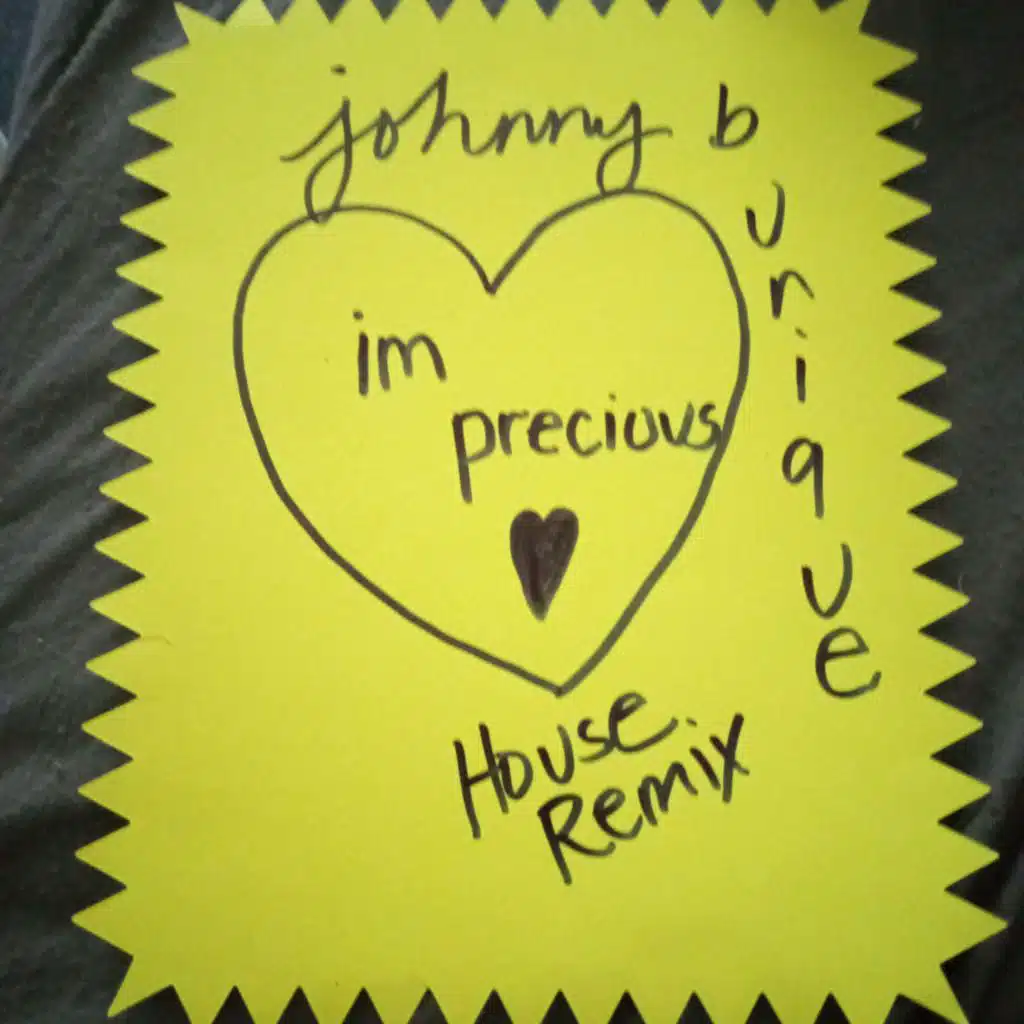 johnny b
unique
im
precious
House
Remix